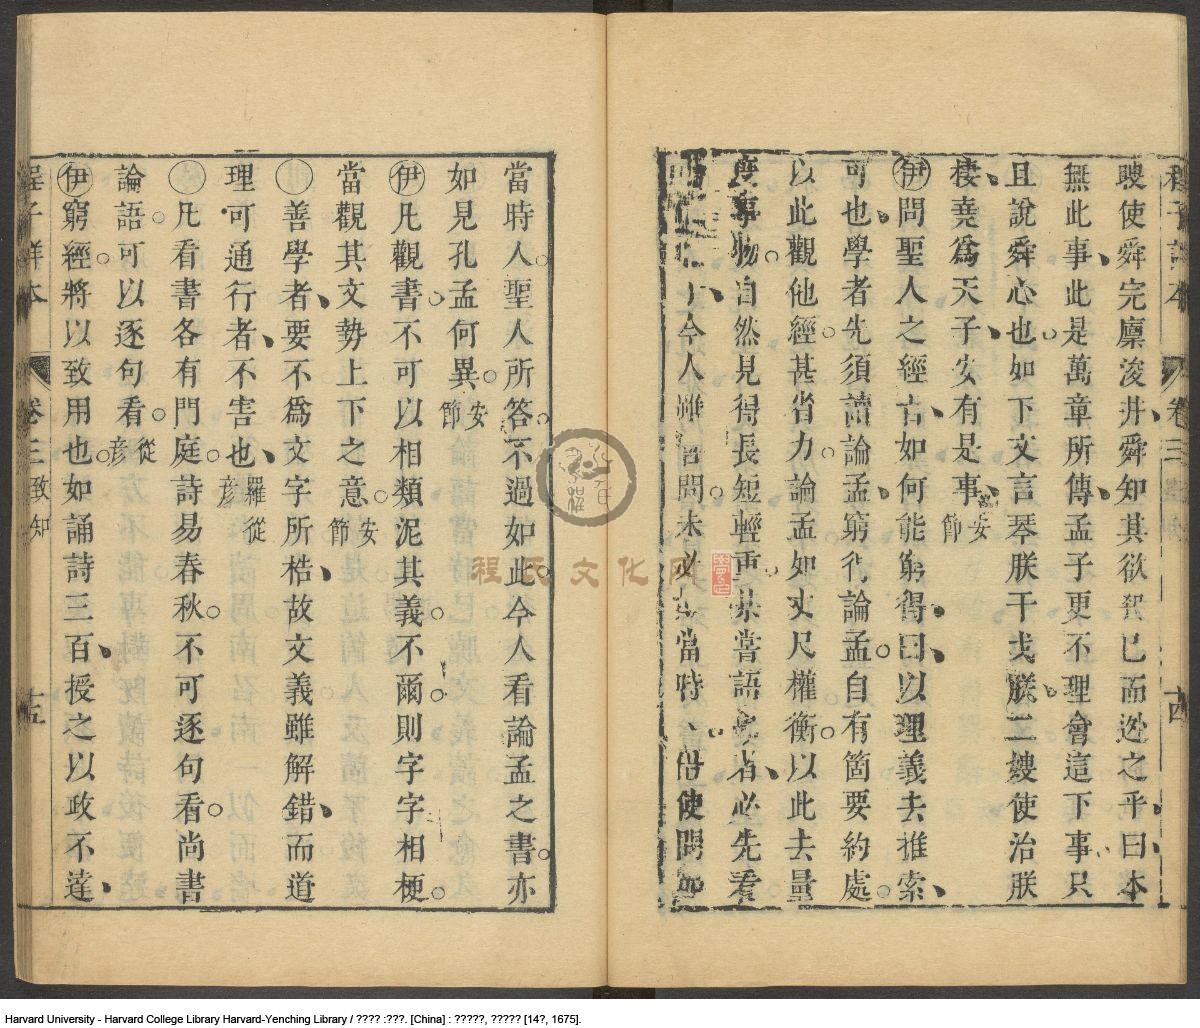 聣使舜完廩浚井舜知其欲殺已而逃之乎曰本
無此事此是萬章所傳孟子更不理會這下事只
且說舜心也如下文言琴朕干戈朕二嫂使治朕
棲堯為天子安有是事安節
伊問聖人之經旨如何能窮得曰以理義去推索
可也學者先須讀論孟窮得論孟自有箇要約處
以此觀他經甚省力論孟如丈尺權衡以此去量
度事物自然見得長短輕重某嘗語學者必先看
今人雖善問未必當時借使問如
當時人聖人所答不過如此今人看論孟之書亦
如見孔孟何異安節
伊凡觀書不可以相類泥其義不爾則字字相梗
當觀其文勢上下之意安節
〇善學者要不為文字所梏故文義雖解錯而道
理可通行者不害也羅從彥
〇凡看書各有門庭詩易春秋不可逐句看尚書
論語可以逐句看從彥
伊窮經將以致用也如誦詩三百授之以政不達
程子詳本 卷三 致知 十五
卷三 十四
程氏文化网
Harvard University - Harvard College Library Harvard-Yenching Library / ???? :???. [China] : ?????, ????? [14?, 1675].